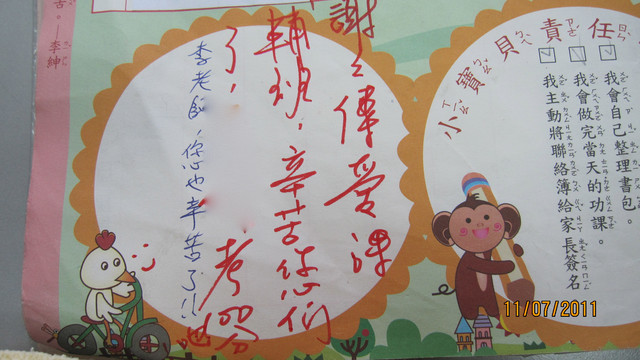 小寶貝責任
我會自己整理書包。
我會做完當天的功課。
我主動將聯絡簿給家長簽名
謝之偉愛課
輔班，辛苦您們
了，
李老師，您也辛苦了!!
苦。─李紳
11/07/2011